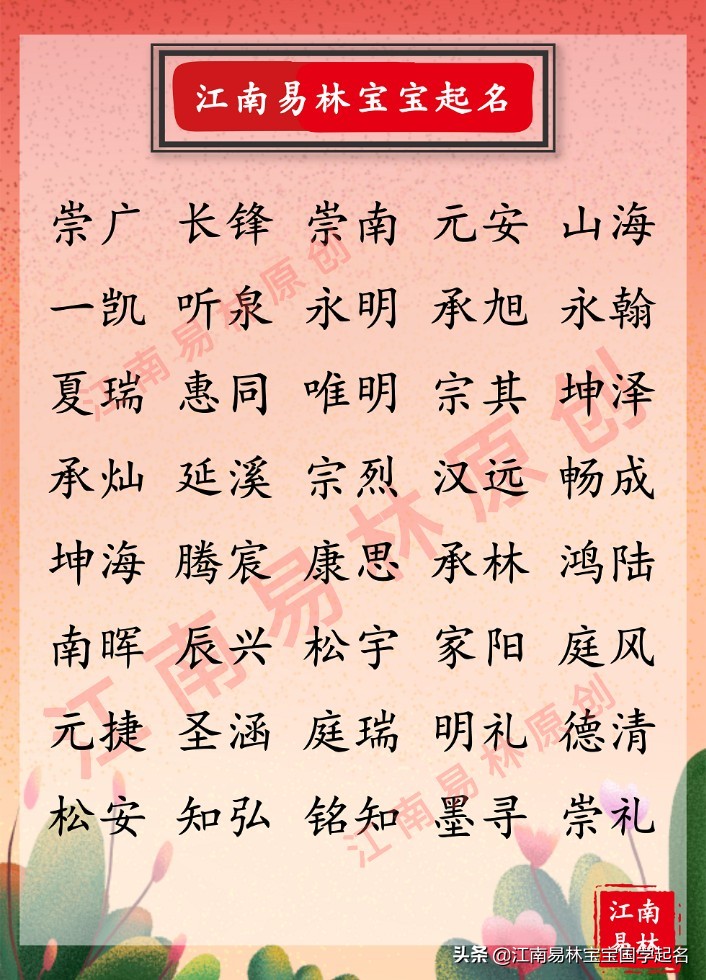 江南易林宝宝起名
崇广 长锋 崇南 元安 山海
一凯 听泉 永明 承旭 永翰
夏瑞 惠同 唯明 宗其 坤泽
承灿 延溪 宗烈 汉远 畅成
坤海 腾宸 康思 承林 鸿陆
南晖 辰兴 松宇 家阳 庭风
元捷 圣涵 庭瑞 明礼 德清
松安 知弘 铭知 墨寻 崇礼
江南易林原创
江南易林原创
江南易林原创
江南
易林
头条 @江南易林宝宝国学起名